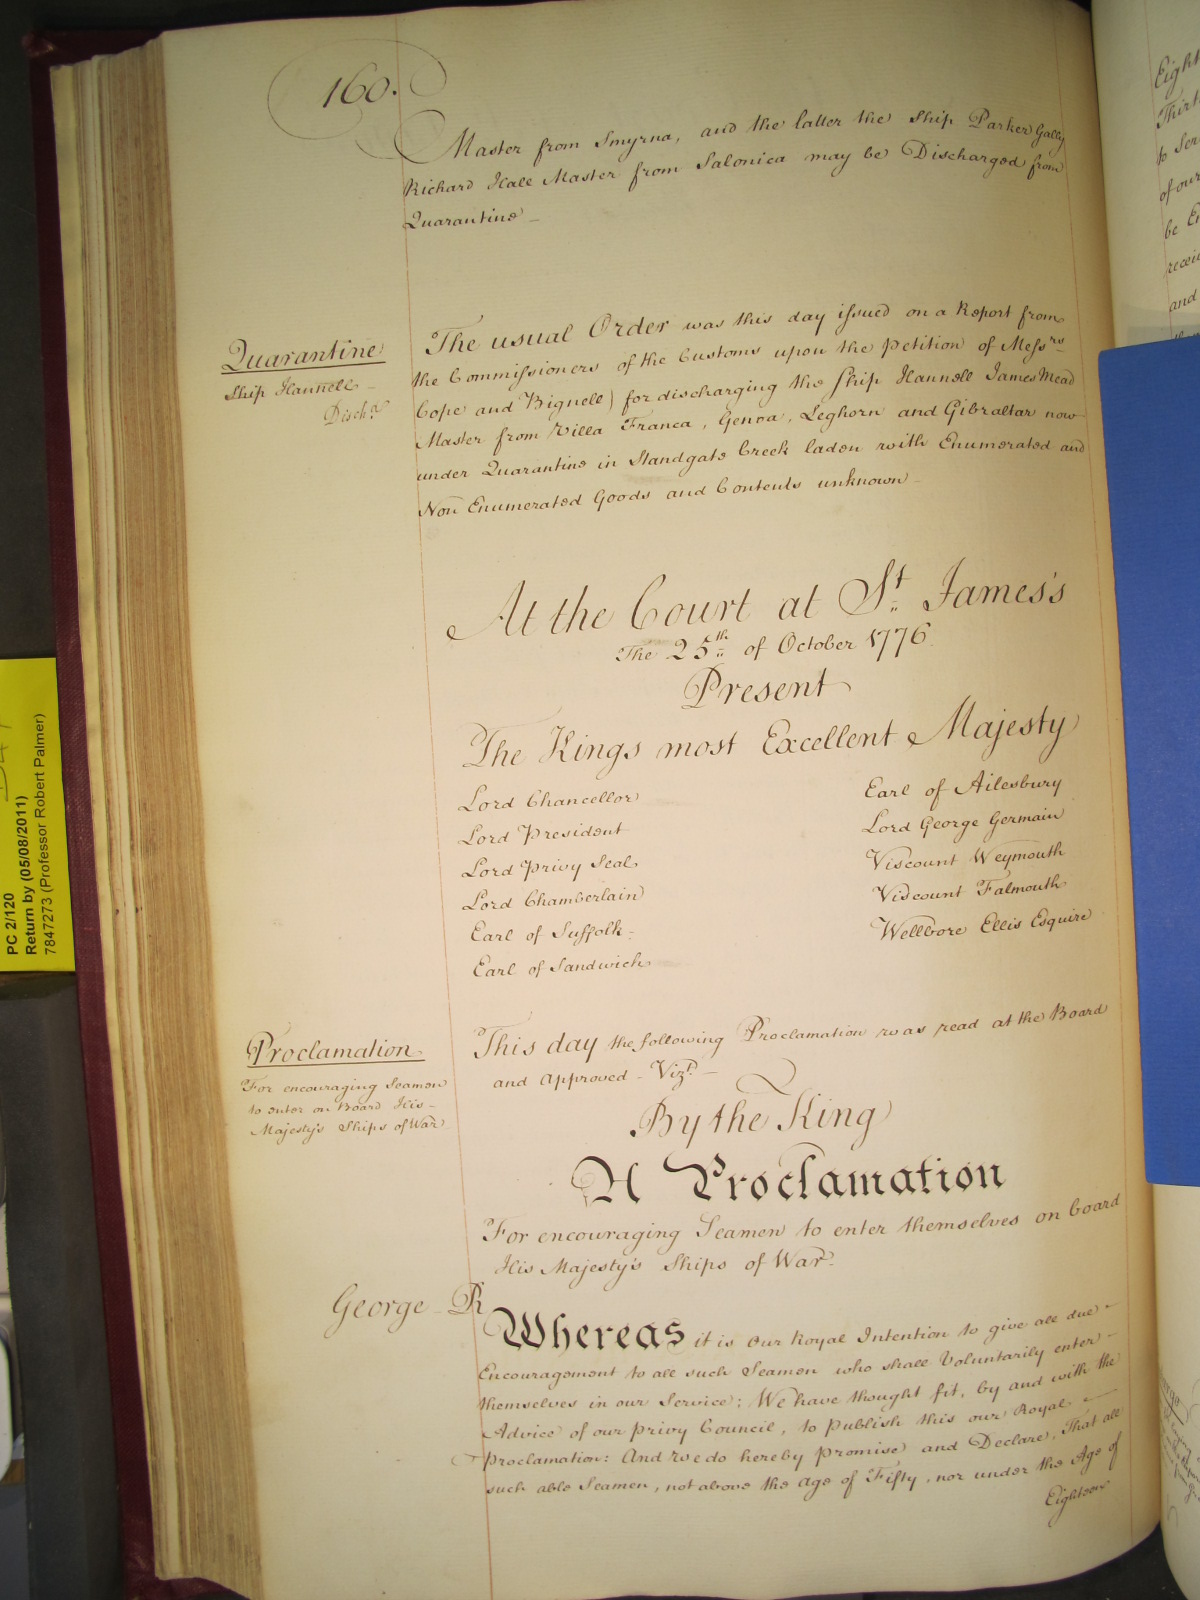 160.
Master from Smyrna, and the latter the Ship Parker Gally
Richard Hall Master from Salonica may be Discharged from
Quarantine
Quarantine
Ship Hannell
Dischᵈ
The usual Order was this day issued on a Report from
the Commissioners of the Customs upon the Petition of Messʳˢ
Cope and Bignell) for discharging the Ship Hannell James Mead
Master from Villa Franca, Genoa, Leghorn and Gibraltar now
under Quarantine in Standgate Creek laden with Enumerated and
Non Enumerated Goods and Contents unknown
At the Court at Sᵗ James's
The 25ᵗʰ of October 1776
Present
The Kings most Excellent Majesty
Lord Chancellor
Lord President
Lord Privy Seal
Lord Chamberlain
Earl of Suffolk
Earl of Sandwich
Earl of Ailesbury
Lord George Germain
Viscount Weymouth
Viscount Falmouth
Wellbore Ellis Esquire
Proclamation
For encouraging Seamen
to enter on Board His
Majesty's Ships of War
This day the following Proclamation was read at the Board
and Approved - Vizᵗ
By the King
A Proclamation
For encouraging Seamen to enter themselves on board
His Majesty's Ships of War.
George R
Whereas it is our Royal Intention to give all due
Encouragement to all such Seamen who shall Voluntarily enter
themselves in our Service; We have thought fit, by and with the
Advice of our Privy Council, to Publish this our Royal
Proclamation: And we do hereby Promise and Declare, That all
such able Seamen, not above the Age of Fifty, nor under the Age of
Eighteen
PC 2/120
Return by (05/08/2011)
7847273 (Professor Robert Palmer)
Eight
to Ser
of our
be E
receiv
and